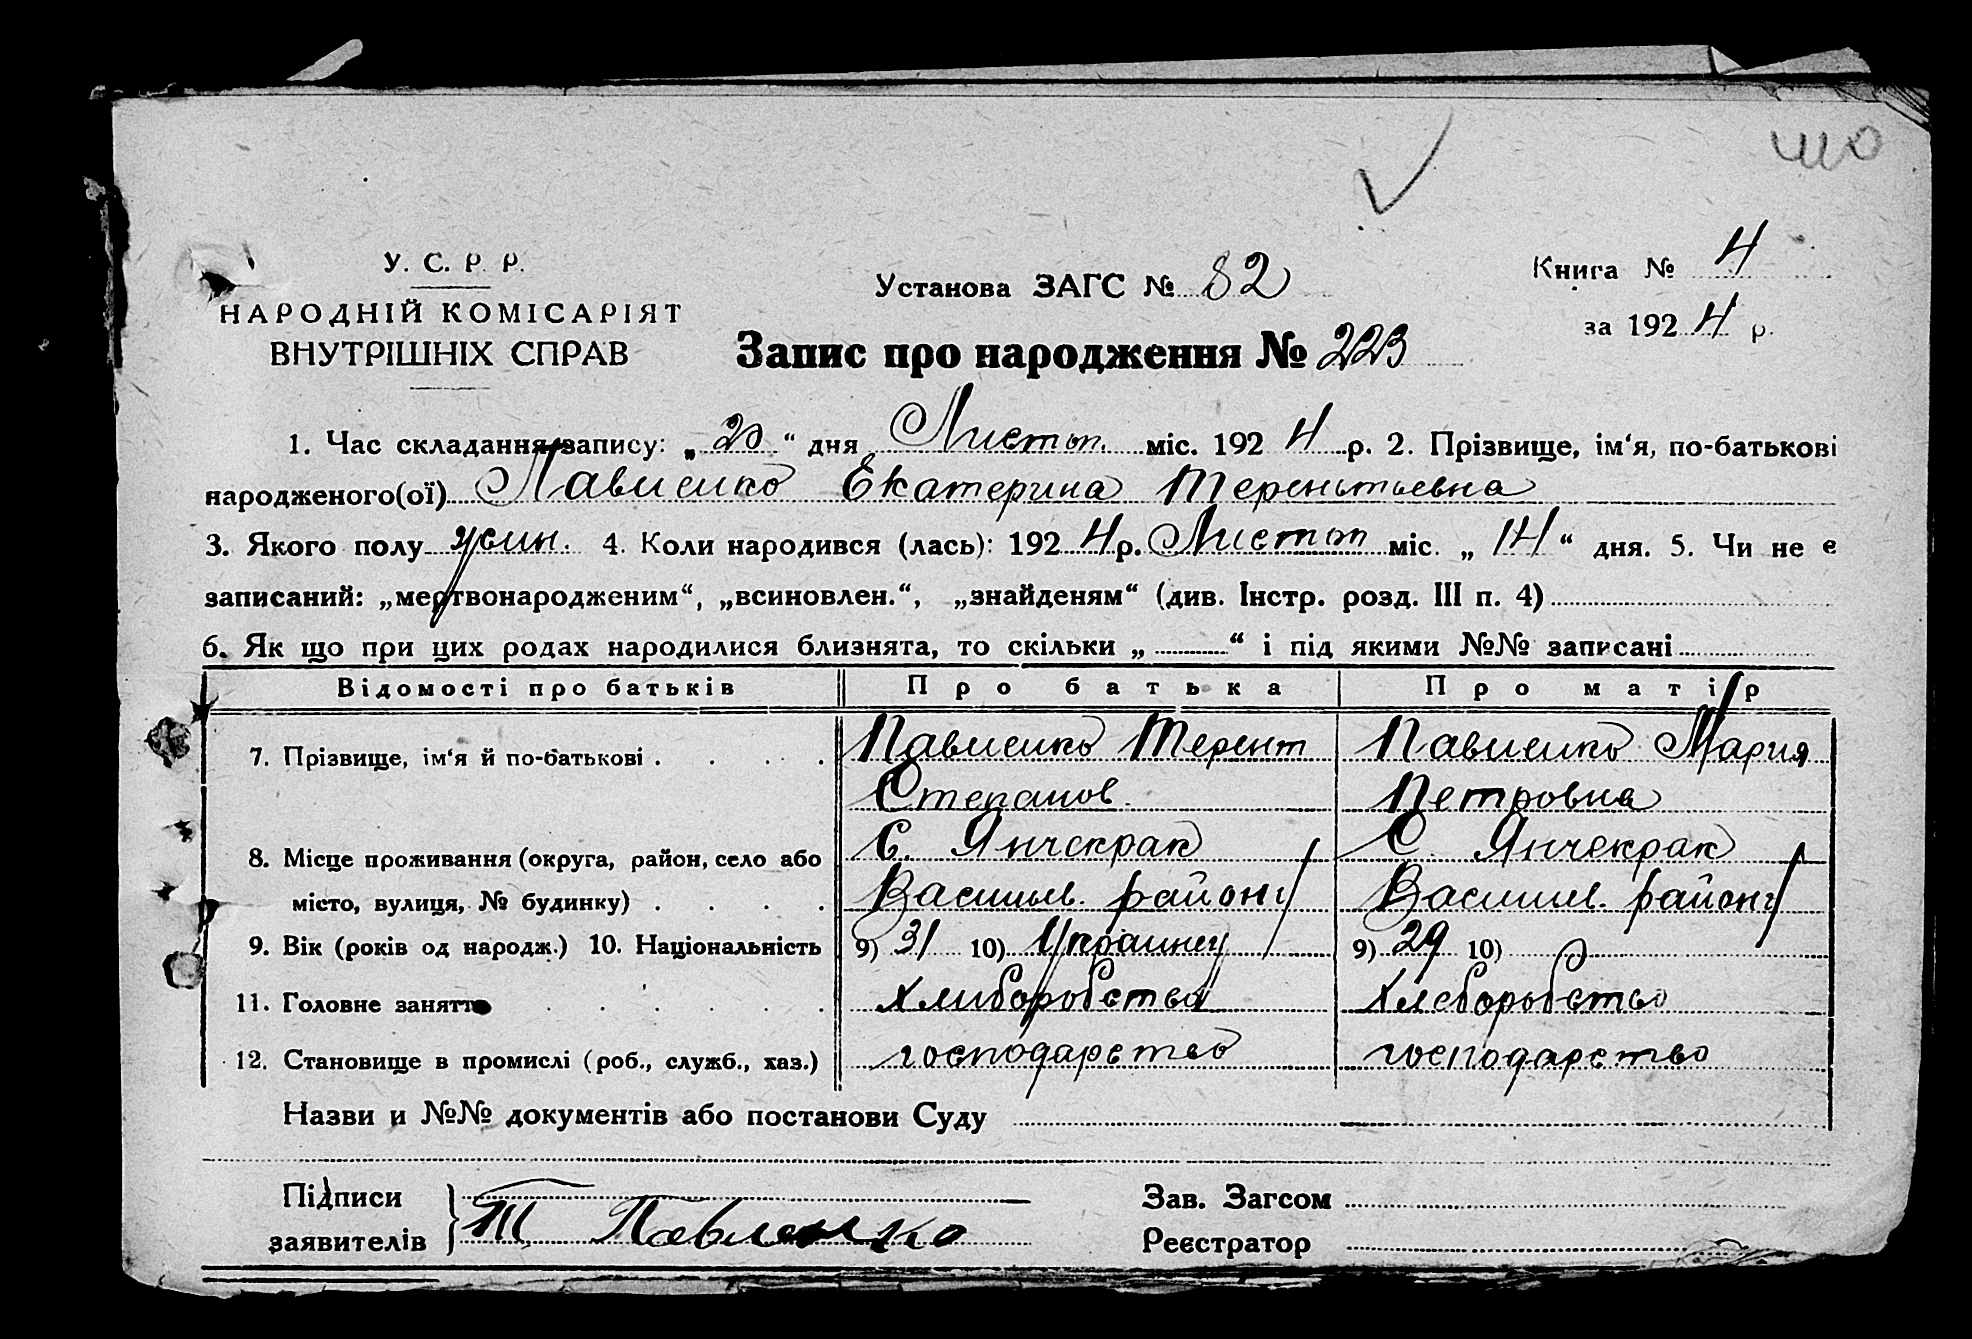 У. С. Р. Р.
НАРОДНІЙ КОМІСАРІЯТ
ВНУТРІШНІХ СПРАВ
Установа ЗАГС № 82
Книга № 4
за 1924 р.
Запис про народження № 223
1. Час складання запису: „20“ дня Листоп. міс. 1924 р. 2. Прізвище, ім‘я, по-батькові
народженого(ої) Павленко Екатерина Терентьевна
3. Якого полу жин. 4. Коли народився (лась): 1924 р. Листоп міс. „14“ дня. 5. Чи не є
записаний: „мертвонародженим“, „всиновлен.“, „знайденям“ (див. Інстр. розд. III п. 4)
6. Як що при цих родах народилися близнята, то скільки „ “ і під якими №№ записані
Відомості про батьків Про батька Про матір
7. Прізвище, ім‘я й по-батькові Павленко Терент Павленко Мария
Степанов. Петровна
8. Місце проживання (округа, район, село або С. Янчекрак С. Янчекрак
місто, вулиця, № будинку) Васильев. району Васильев. району
9. Вік (років од народж.) 10. Національність 9) 31 10) Украинец 9) 29 10)
11. Головне заняття Хлиборобство Хлеборобство
12. Становище в промислі (роб., служб., хаз.) господарство господарство
Назви и №№ документів або постанови Суду
Підписи
заявителів Т Павленко
Зав. Загсом
Реєстратор